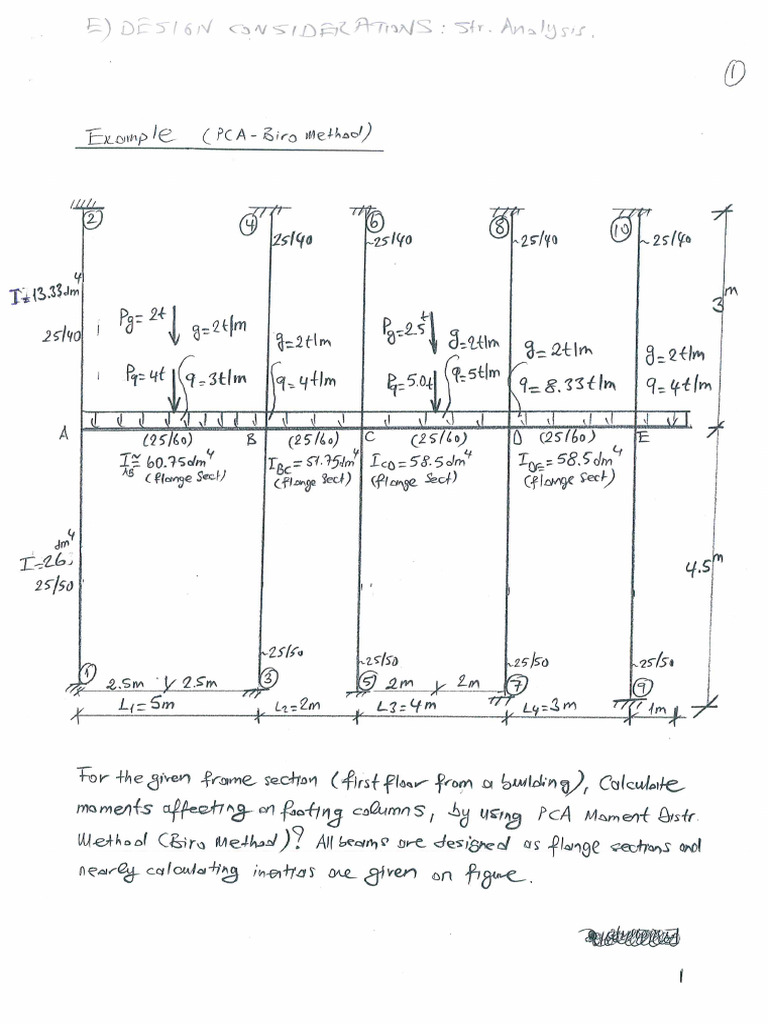 E) DESIGN CONSIDERATIONS: Str. Analysis.
①
Example (PCA-Biro Method)
② ④ ⑥ ⑧ ⑩
25/40 ~25/40 ~25/40 ~25/40
I=13.33dm⁴
25/40
3m
Pg=2t g=2t/m
Pq=4t q=3t/m
g=2t/m
q=4t/m
Pg=2.5t g=2t/m
Pq=5.0t q=5t/m
g=2t/m
q=8.33t/m
g=2t/m
q=4t/m
A B C D E
(25/60) (25/60) (25/60) (25/60)
I_AB≅60.75dm⁴
(flange sect)
I_BC=51.75dm⁴
(flange sect)
I_CD=58.5dm⁴
(flange sect)
I_DE=58.5dm⁴
(flange sect)
I=26 dm⁴
25/50
4.5m
~25/50 ~25/50 ~25/50 ~25/50
① ③ ⑤ ⑦ ⑨
2.5m 2.5m 2m 2m
L1=5m L2=2m L3=4m L4=3m 1m
For the given frame section (first floor from a building), Calculate
moments affecting on footing columns, by using PCA Moment Distr.
Method (Biro Method)? All beams are designed as flange sections and
nearly calculating inertias are given on figure.
1